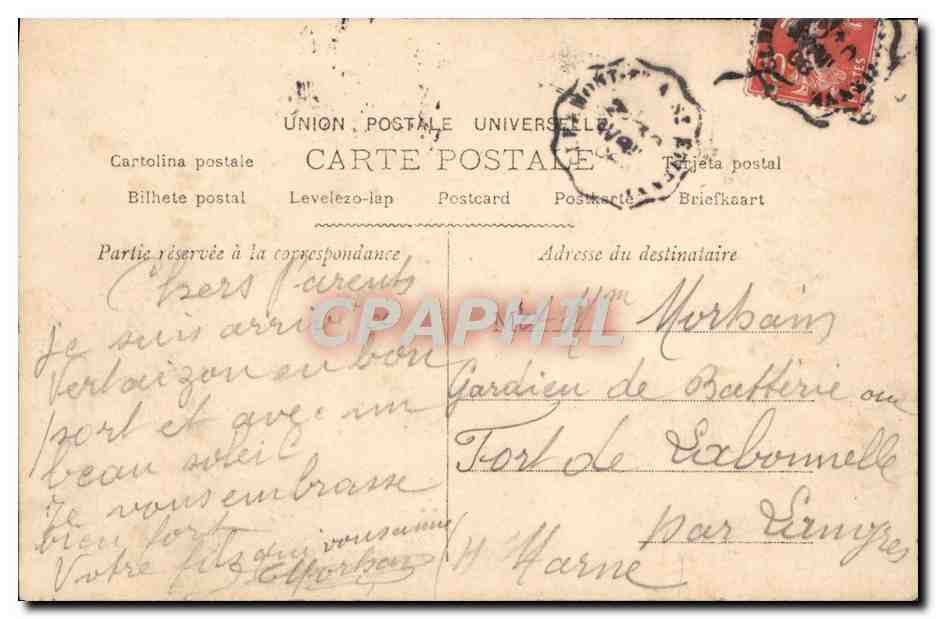 UNION POSTALE UNIVERSELLE
CARTE POSTALE
Cartolina postale
Tarjeta postal
Bilhete postal
Levelezo-lap
Postcard
Postkarte
Briefkaart
Partie réservée à la correspondance
Chers Parents
Je suis arrivé à
Vertaizon en bon
port et avec un
beau soleil
Je vous embrasse
bien fort
Votre fils qui vous aime
Morhain
Adresse du destinataire
M et Mme Morhain
Gardien de Battérie au
Fort de Labonnelle
par Langres
Hte Marne
CPAPHIL